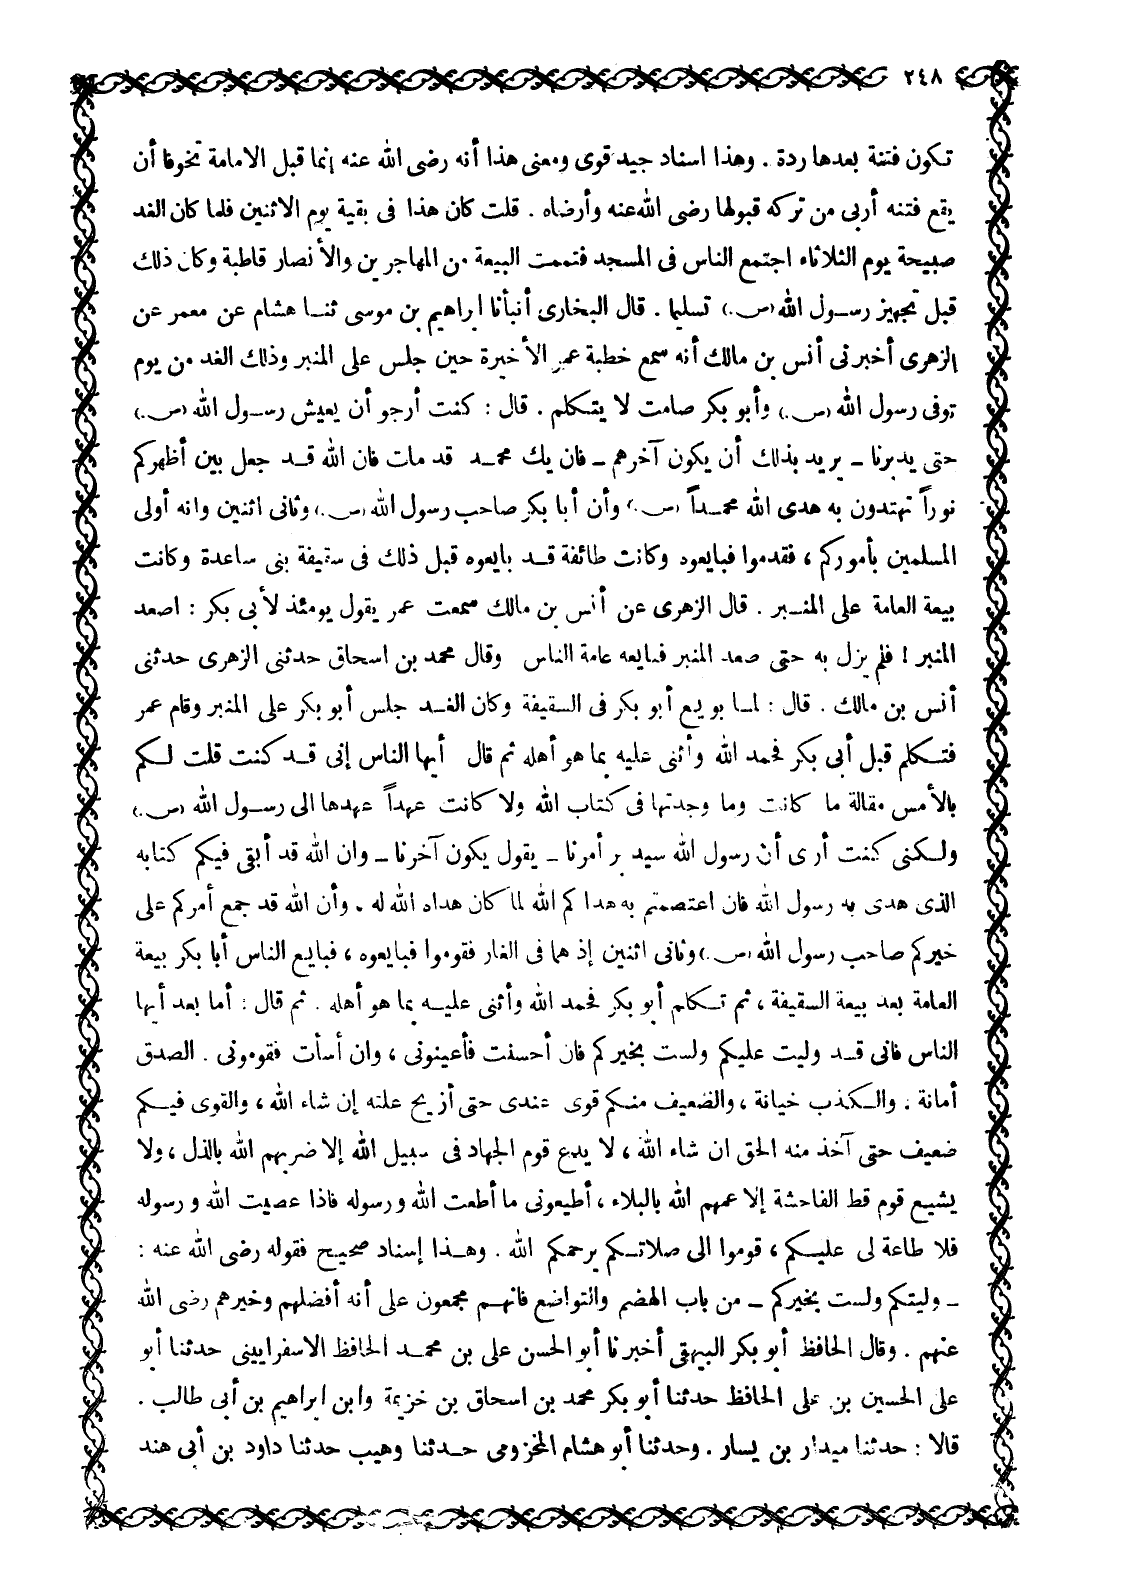 ٢٤٨
تكون فتنة بعدها ردة . وهذا اسناد جيد قوى ومعنى هذا أنه رضى الله عنه إنما قبل الامامة تخوفا أن
يقع فتنه أربى من تركه قبولها رضى الله عنه وأرضاه . قلت كان هذا فى بقية يوم الاثنين فلما كان الغد
صبيحة يوم الثلاثاء اجتمع الناس فى المسجد فتممت البيعة من المهاجرين والأنصار قاطبة وكان ذلك
قبل تجهيز رسول الله (ص.) تسليما . قال البخارى أنبأنا ابراهيم بن موسى ثنا هشام عن معمر عن
الزهرى أخبرنى أنس بن مالك أنه سمع خطبة عمر الأخيرة حين جلس على المنبر وذلك الغد من يوم
توفى رسول الله (ص.) وأبو بكر صامت لا يتكلم . قال : كنت أرجو أن يعيش رسول الله (ص.)
حتى يدبرنا - يريد بذلك أن يكون آخرهم - فان يك محمد قد مات فان الله قد جعل بين أظهركم
نوراً تهتدون به هدى الله محمداً (ص.) وأن أبا بكر صاحب رسول الله (ص.) وثانى اثنين وانه أولى
المسلمين بأموركم ، فقدموا فبايعوه وكانت طائفة قد بايعوه قبل ذلك فى سقيفة بنى ساعدة وكانت
بيعة العامة على المنبر . قال الزهرى عن أنس بن مالك سمعت عمر يقول يومئذ لأبى بكر : اصعد
المنبر ! فلم يزل به حتى صعد المنبر فبايعه عامة الناس وقال محمد بن اسحاق حدثنى الزهرى حدثنى
أنس بن مالك . قال : لما بويع أبو بكر فى السقيفة وكان الغد جلس أبو بكر على المنبر وقام عمر
فتكلم قبل أبى بكر فحمد الله وأثنى عليه بما هو أهله ثم قال أيها الناس إنى قد كنت قلت لكم
بالأمس مقالة ما كانت وما وجدتها فى كتاب الله ولا كانت عهداً عهدها الى رسول الله (ص.)
ولكنى كنت أرى أن رسول الله سيدبر أمرنا - يقول يكون آخرنا - وان الله قد أبقى فيكم كتابه
الذى هدى به رسول الله فان اعتصمتم به هداكم الله لما كان هداه الله له . وأن الله قد جمع أمركم على
خيركم صاحب رسول الله (ص.) وثانى اثنين إذ هما فى الغار فقوموا فبايعوه ، فبايع الناس أبا بكر بيعة
العامة بعد بيعة السقيفة ، ثم تكلم أبو بكر فحمد الله وأثنى عليه بما هو أهله . ثم قال : أما بعد أيها
الناس فانى قد وليت عليكم ولست بخيركم فان أحسنت فأعينونى ، وان أسأت فقومونى . الصدق
أمانة . والكذب خيانة ، والضعيف منكم قوى عندى حتى أزيح علته إن شاء الله ، والقوى فيكم
ضعيف حتى آخذ منه الحق ان شاء الله ، لا يدع قوم الجهاد فى سبيل الله إلا ضربهم الله بالذل ، ولا
يشيع قوم قط الفاحشة إلا عمهم الله بالبلاء ، أطيعونى ما أطعت الله ورسوله فاذا عصيت الله ورسوله
فلا طاعة لى عليكم ، قوموا الى صلاتكم يرحمكم الله . وهذا إسناد صحيح فقوله رضى الله عنه :
- وليتكم ولست بخيركم - من باب الهضم والتواضع فانهم مجمعون على أنه أفضلهم وخيرهم رضى الله
عنهم . وقال الحافظ أبو بكر البيهقى أخبرنا أبو الحسن على بن محمد الحافظ الاسفرايينى حدثنا أبو
على الحسين بن على الحافظ حدثنا أبو بكر محمد بن اسحاق بن خزيمة وابن ابراهيم بن أبى طالب .
قالا : حدثنا ميدار بن يسار . وحدثنا أبو هشام المخزومى حدثنا وهيب حدثنا داود بن أبى هند